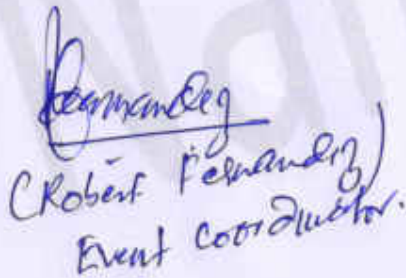 Fernandez
(Robert Fernandez)
Event Coordinator.